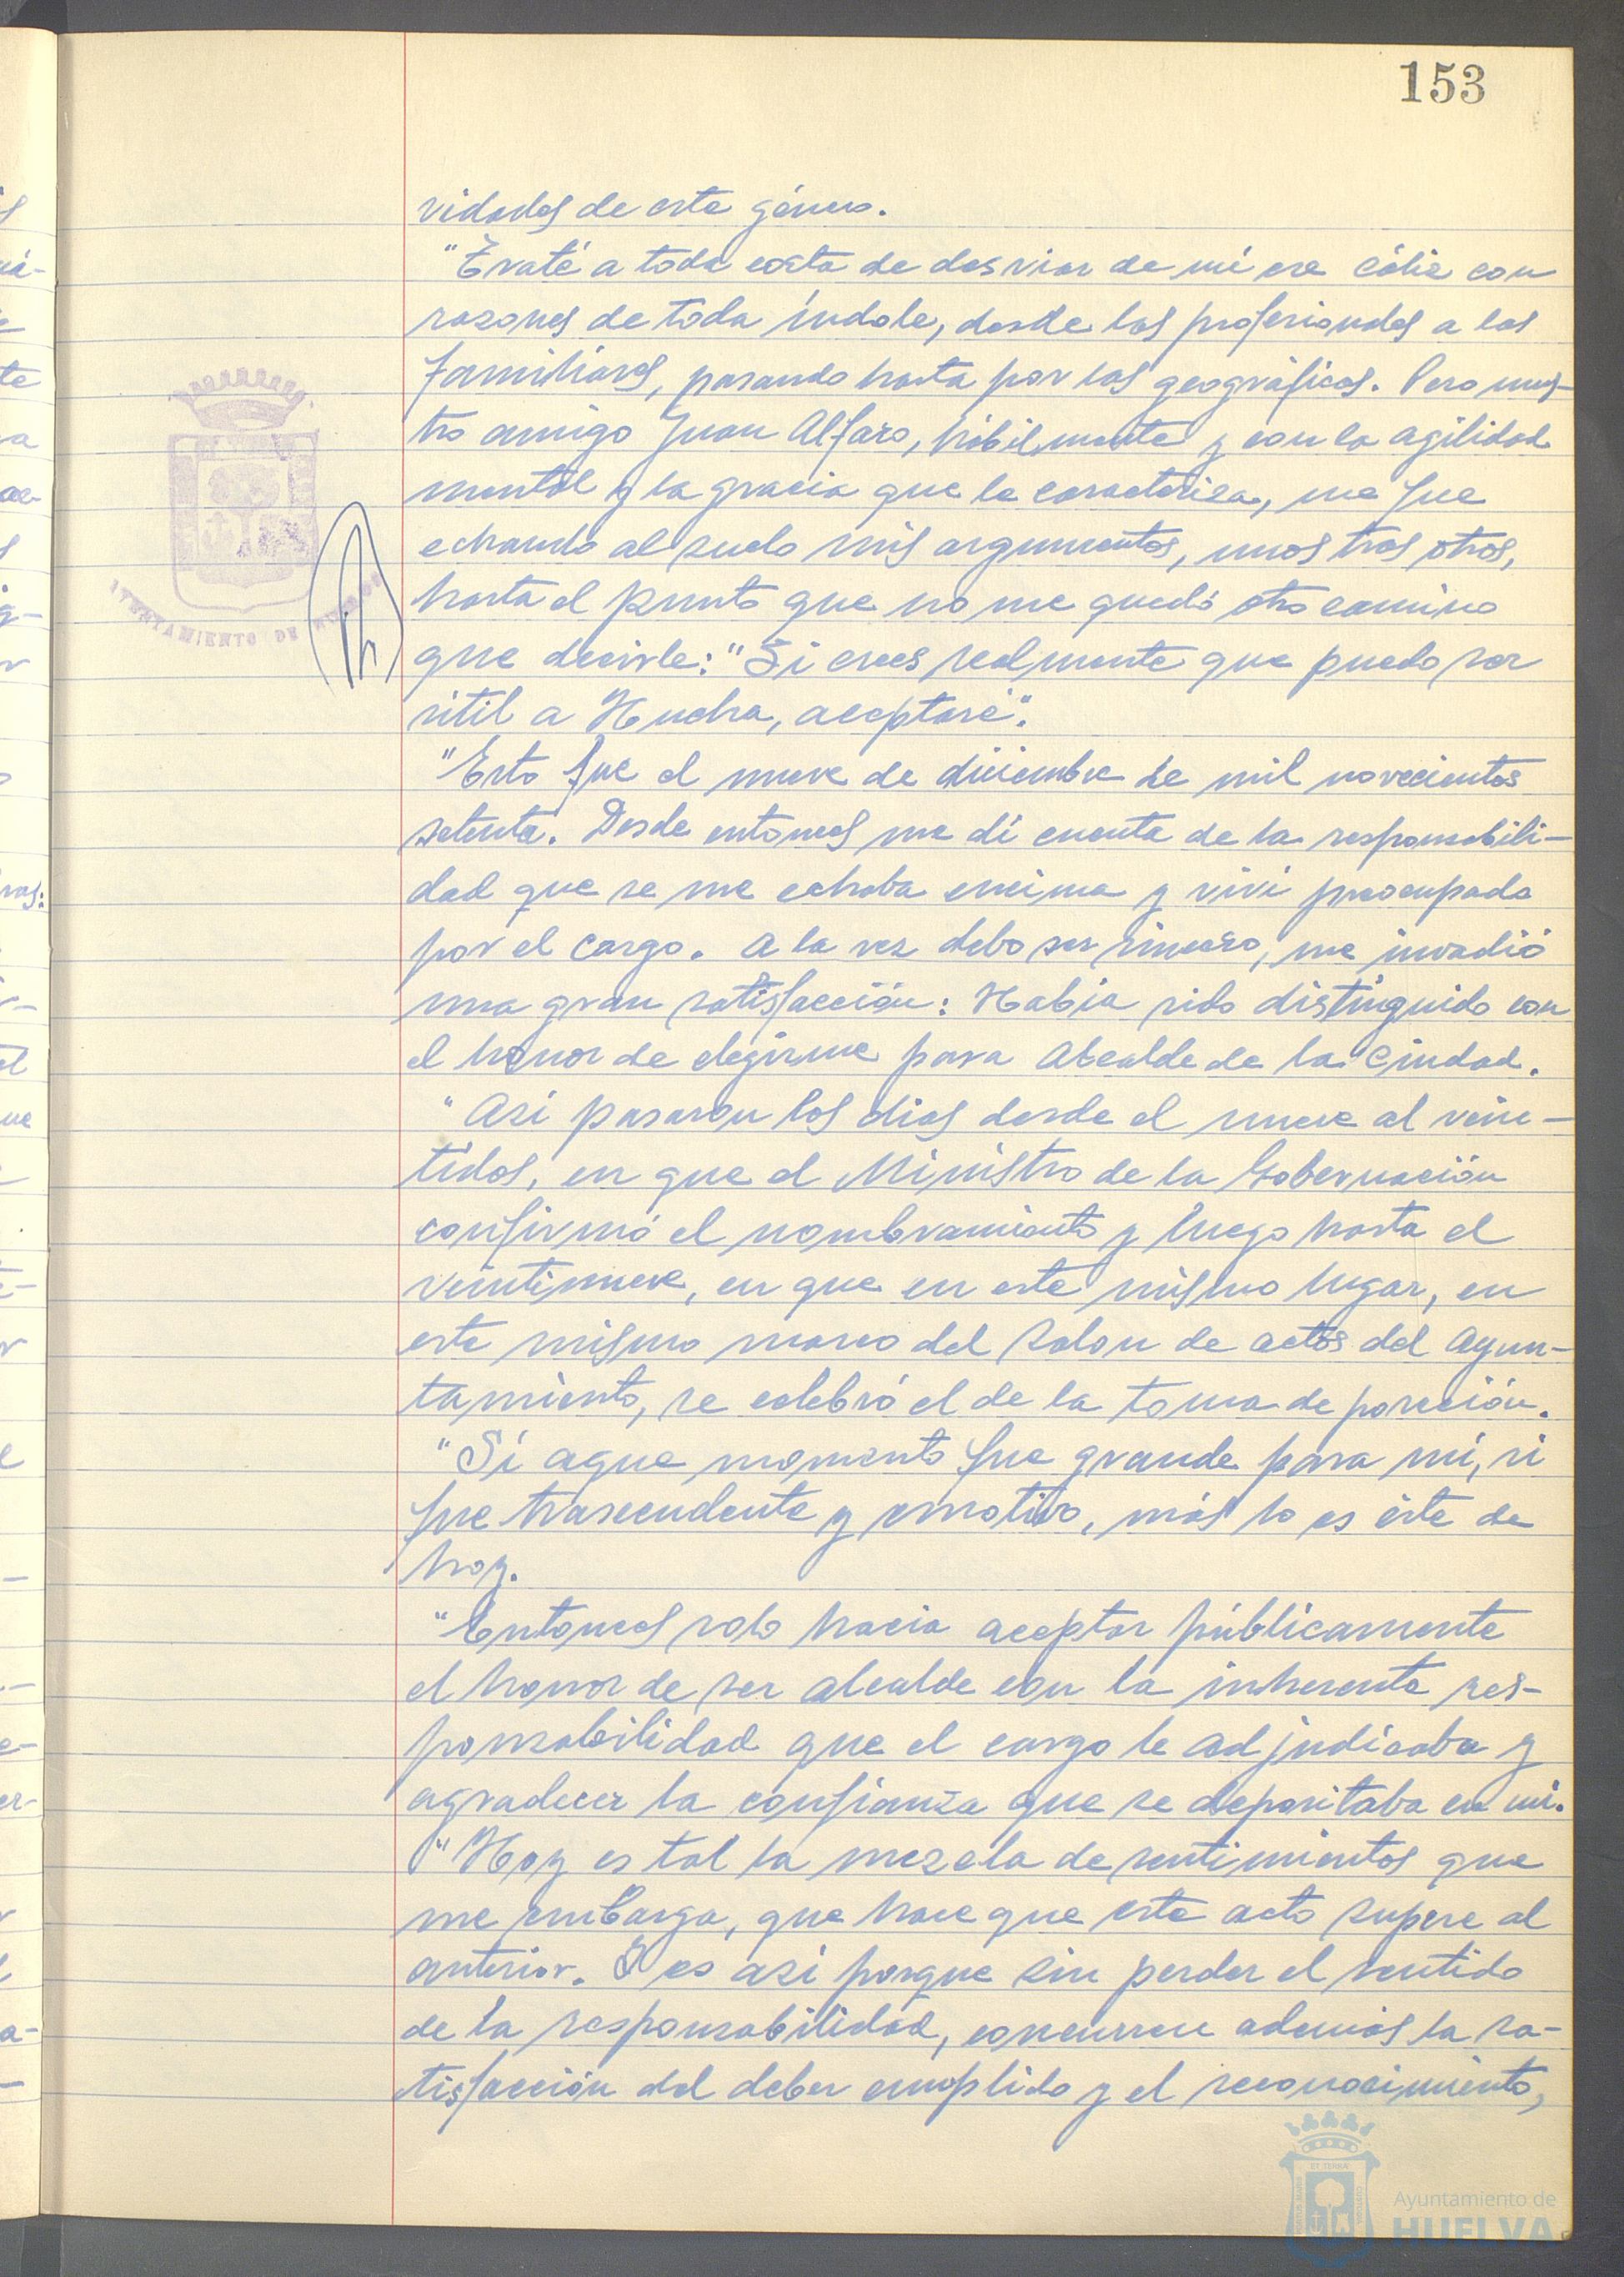 153
vidades de este género.
"Traté a toda costa de desviar de mí ese cáliz con
razones de toda índole, desde las profesionales a las
familiares, pasando hasta por las geográficas. Pero nues-
tro amigo Juan Alfaro, hábilmente y con la agilidad
mental y la gracia que le caracteriza, me fue
echando al suelo mis argumentos, unos tras otros,
hasta el punto que no me quedó otro camino
que decirle: "Si crees realmente que puedo ser
útil a Huelva, aceptaré".
"Esto fue el nueve de diciembre de mil novecientos
setenta. Desde entonces me dí cuenta de la responsabili-
dad que se me echaba encima y viví preocupado
por el cargo. A la vez debo ser sincero, me invadió
una gran satisfacción: Había sido distinguido con
el honor de elegirme para Alcalde de la Ciudad.
"Así pasaron los días desde el nueve al vein-
tidos, en que el Ministro de la Gobernación
confirmó el nombramiento y luego hasta el
veintinueve, en que en este mismo lugar, en
este mismo marco del salon de actos del Ayun-
tamiento, se celebró el de la toma de posesión.
"Si aque momento fue grande para mí, si
fue trascendente y emotivo, más lo es éste de
hoy.
"Entonces solo hacía aceptar públicamente
el honor de ser alcalde con la inherente res-
ponsabilidad que el cargo le adjudicaba y
agradecer la confianza que se depositaba en mí.
"Hoy es tal la mezcla de sentimientos que
me embarga, que hace que este acto supere al
anterior. Y es así porque sin perder el sentido
de la responsabilidad, concurren además la sa-
tisfacción del deber cumplido y el reconocimiento,
AYUNTAMIENTO DE
Ayuntamiento de
HUELVA